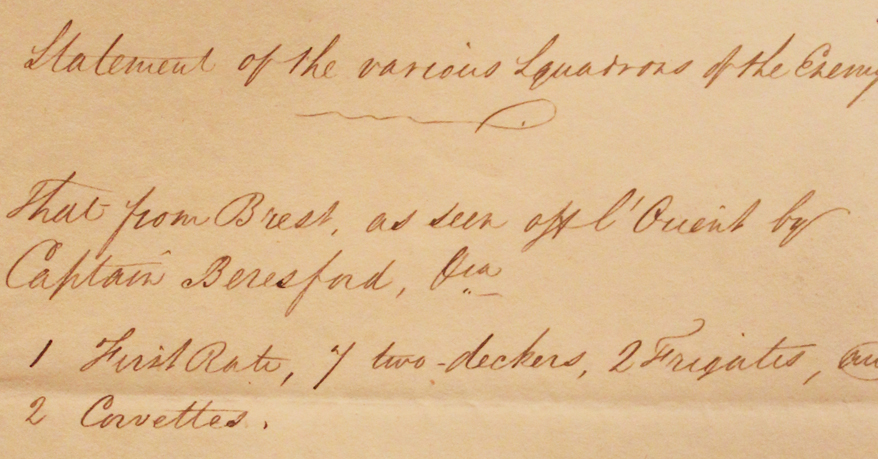 Statement of the various Squadrons of the Enemy
That from Brest, as seen off l'Orient by
Captain Beresford,
1 First Rate, 7 two-deckers, 2 Frigates,
2 Corvettes.